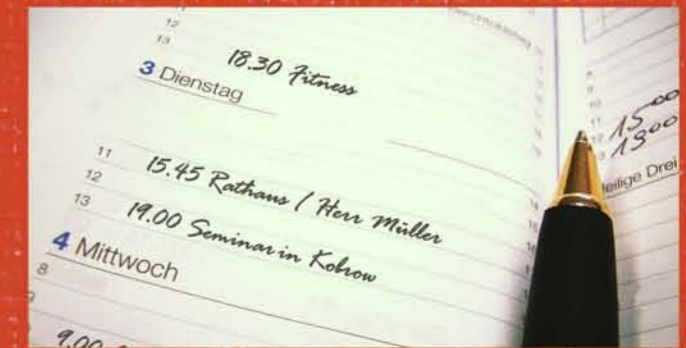 12
13
18.30 Fitness
3 Dienstag
11
12
13
15.45 Rathaus / Herr Müller
19.00 Seminar in Kobrow
4 Mittwoch
8
9.00
10
11
12
1500
1300
eilige Drei